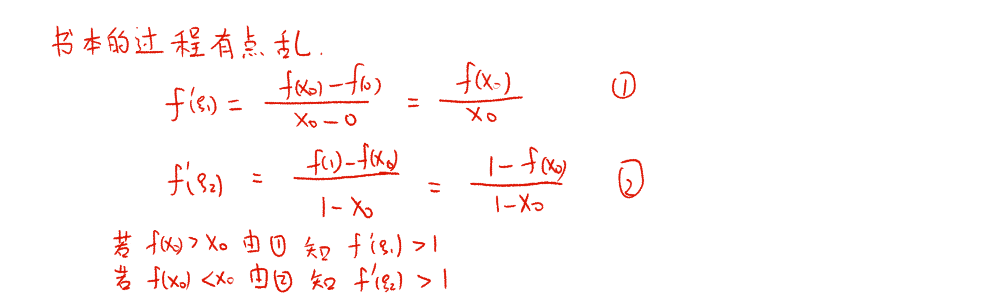 书本的过程有点乱.
f'(ξ₁) = \frac{f(x₀)-f(0)}{x₀-0} = \frac{f(x₀)}{x₀} ①
f'(ξ₂) = \frac{f(1)-f(x₀)}{1-x₀} = \frac{1-f(x₀)}{1-x₀} ②
若 f(x₀)>x₀ 由① 知 f'(ξ₁)>1
若 f(x₀)<x₀ 由② 知 f'(ξ₂)>1